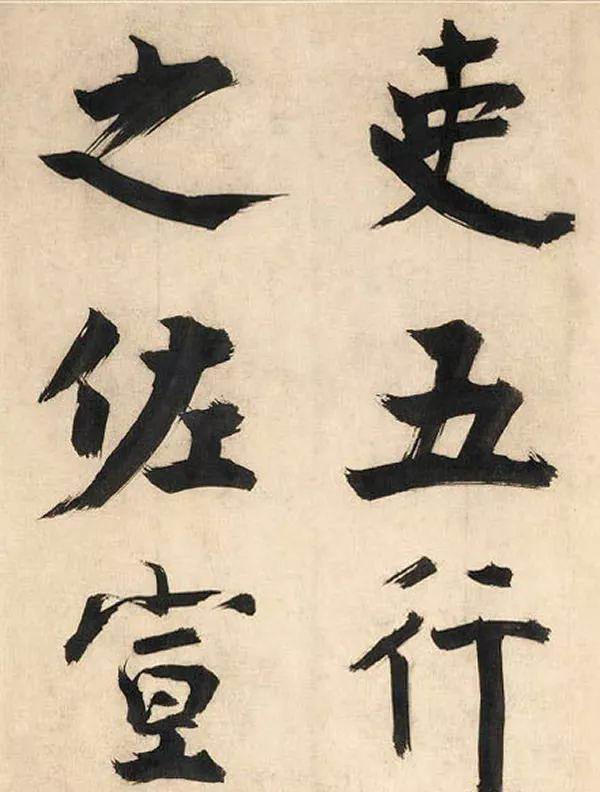 吏五行
之佐宣